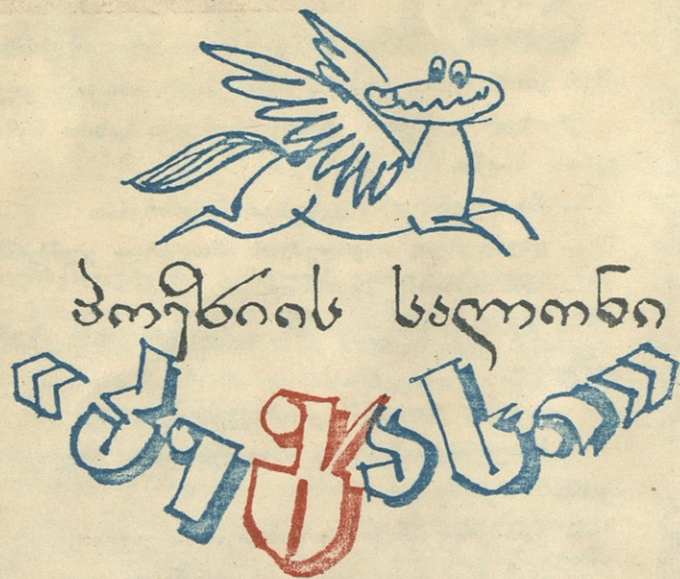 პოეზიის სალონი
«პეგასი»